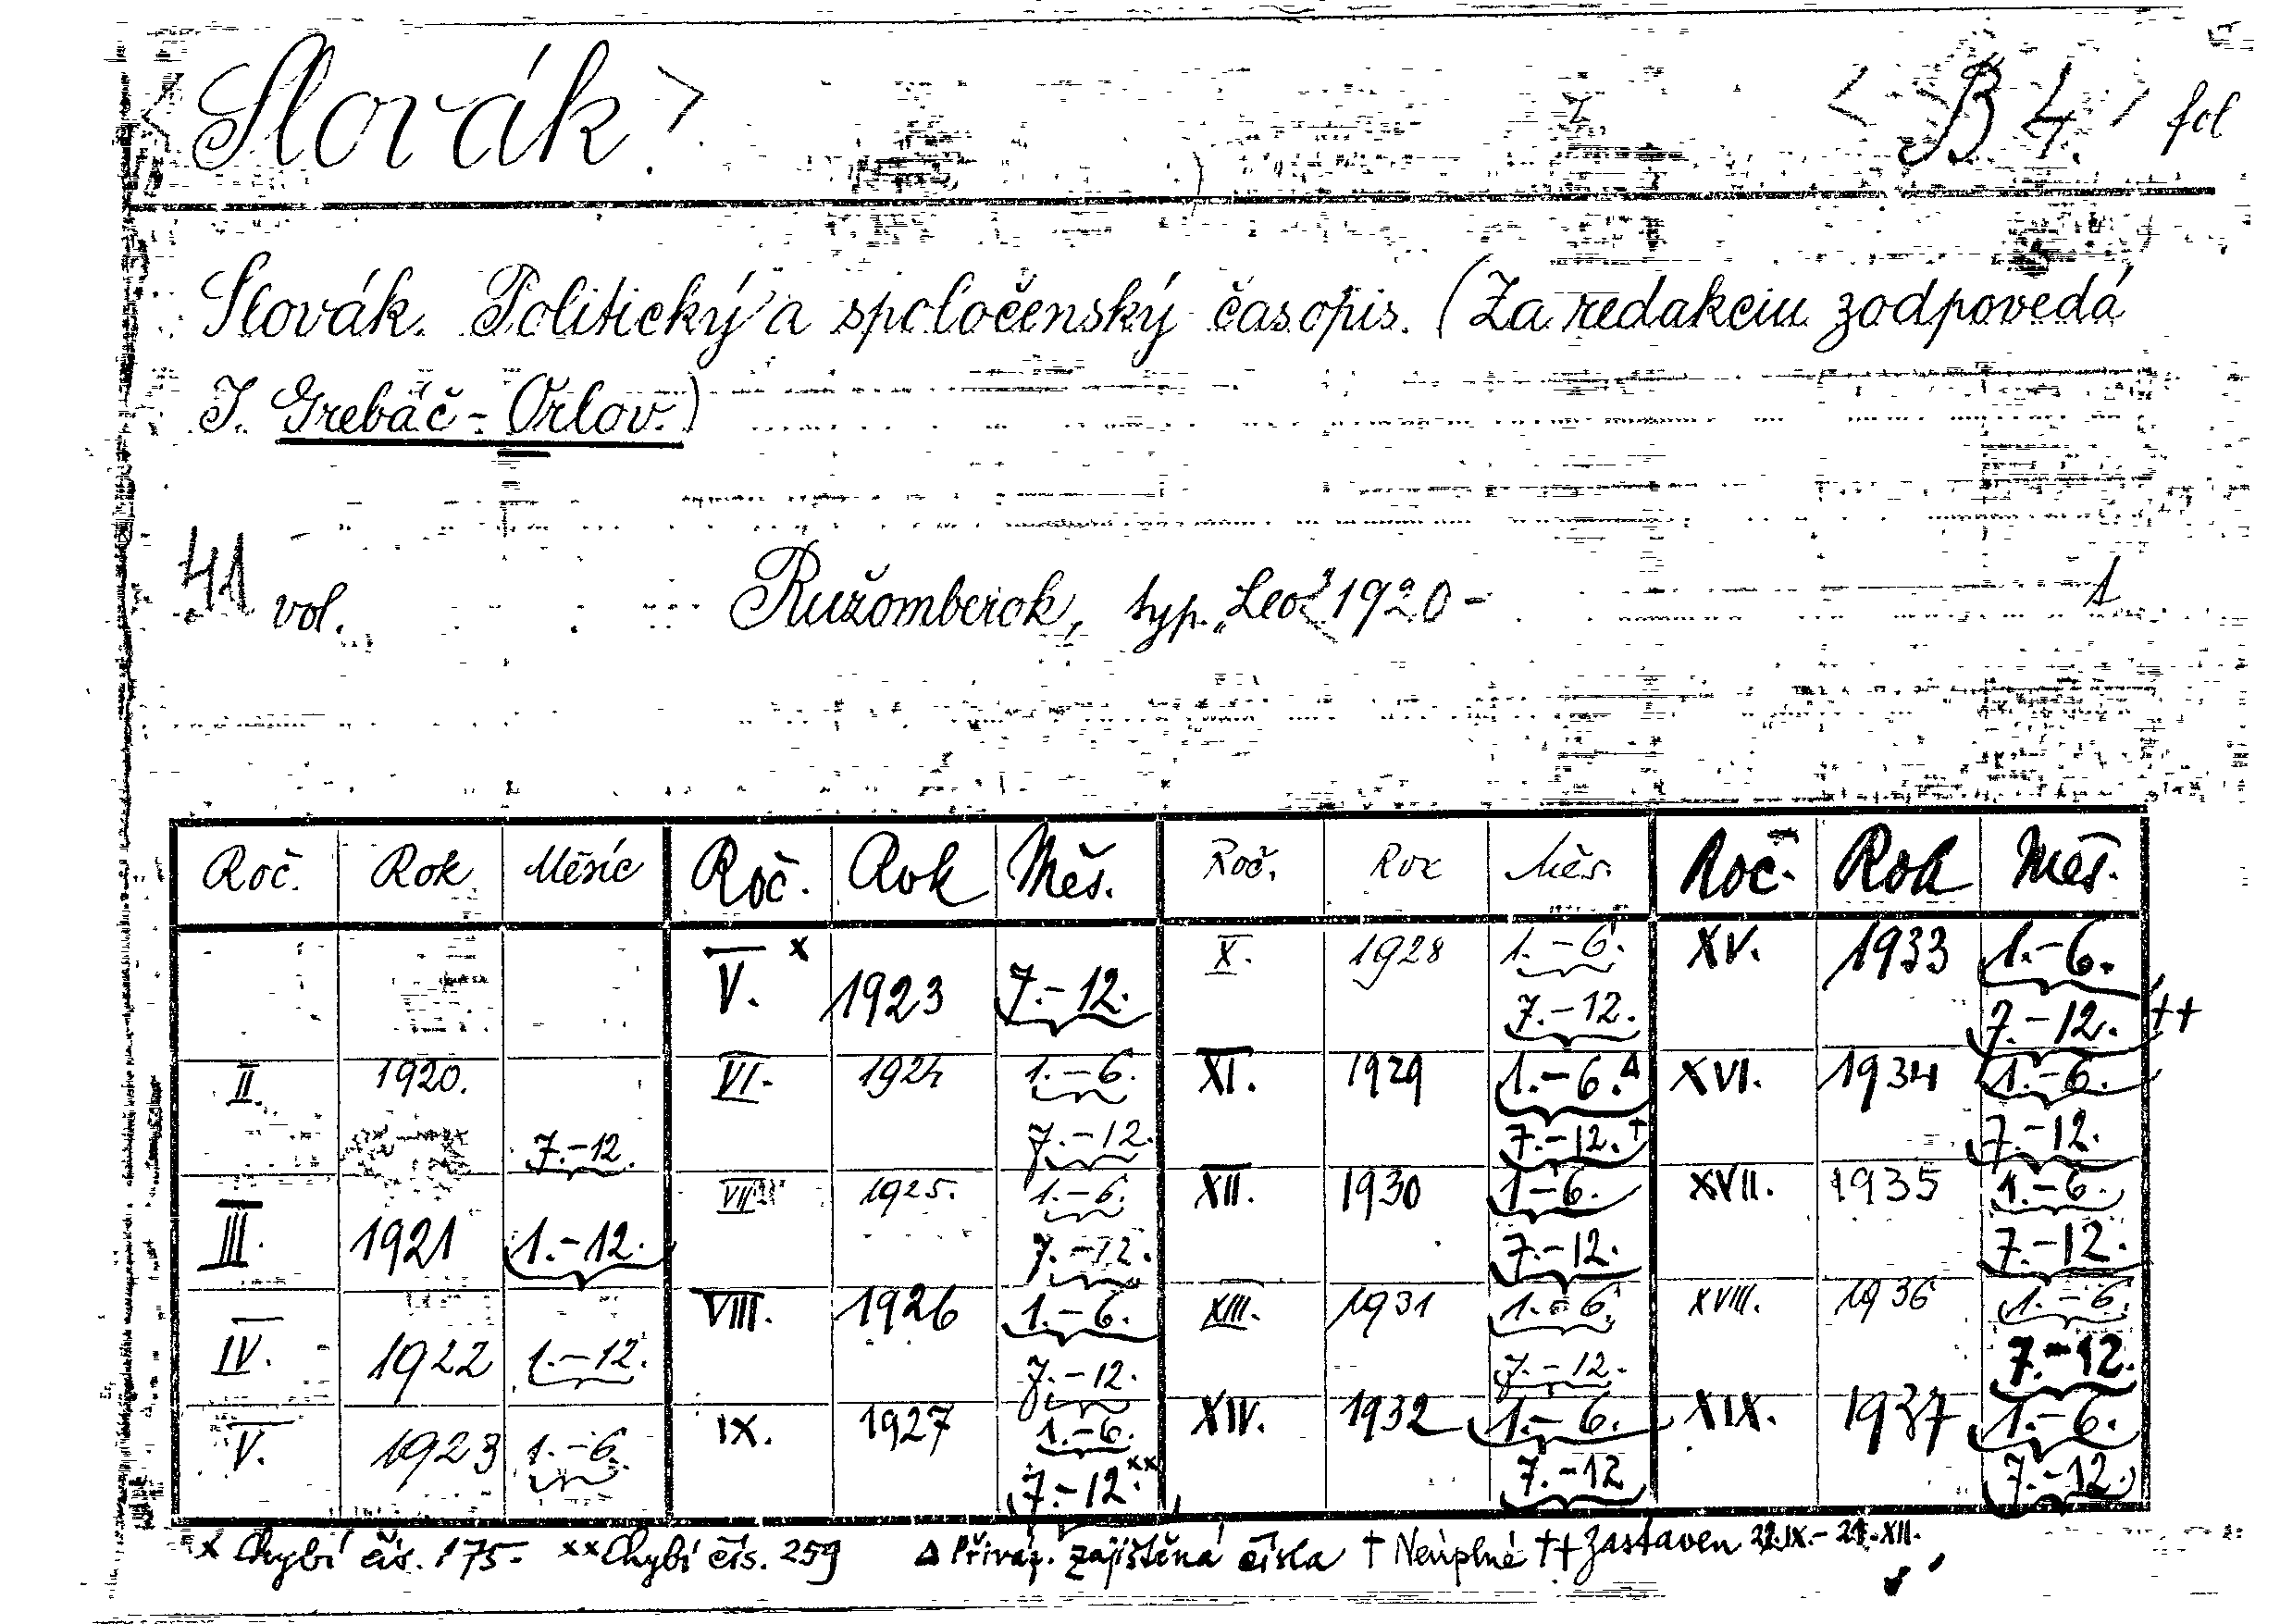 <Slovák> <B 4.> fol
Slovák. Politický a spoločenský časopis. (Za redakciu zodpovedá
I. Grebáč-Orlov.)
41 vol. Ružomberok, typ. „Leo" 1920 - 1
Roč. Rok Měsíc Roč. Rok Měs. Roč. Rok Měs. Roč. Rok Měs.
V. x 1923 7.-12. X. 1928 1.-6. XV. 1933 1.-6.
7.-12. 7.-12. ++
II. 1920. VI. 1924 1.-6. XI. 1929 1.-6. Δ XVI. 1934 1.-6.
7.-12. 7.-12. 7.-12. † 7.-12.
III. 1921 1.-12. VII. 1925. 1.-6. XII. 1930 1-6. XVII. 1935 1.-6.
7.-12. 7.-12. 7.-12.
IV. 1922 1.-12. VIII. 1926 1.-6. XIII. 1931 1.-6. XVIII. 1936 1.-6.
7.-12. 7.-12. 7.-12.
V. 1923 1.-6. IX. 1927 1.-6. XIV. 1932 1.-6. XIX. 1937 1.-6.
7.-12. xx 7.-12 7.-12.
x Chybí čís. 175- xx Chybí čís. 259 Δ Přiváz. zajištěná čísla † Neúplné †† Zastaven